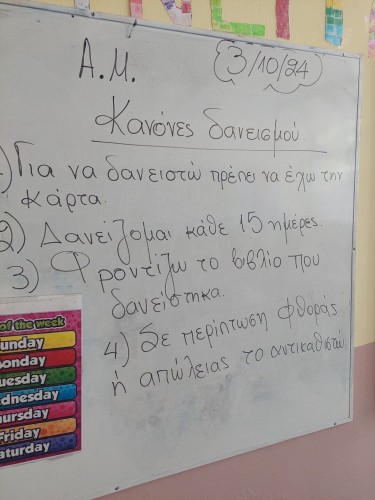 Α.Μ.
3/10/24
Κανόνες δανεισμού
1) Για να δανειστώ πρέπει να έχω την
κάρτα.
2) Δανείζομαι κάθε 15 ημέρες.
3) Φροντίζω το βιβλίο που
δανείστηκα.
4) Σε περίπτωση φθοράς
ή απώλειας το αντικαθιστώ
of the week
unday
onday
uesday
dnesday
hursday
Friday
aturday